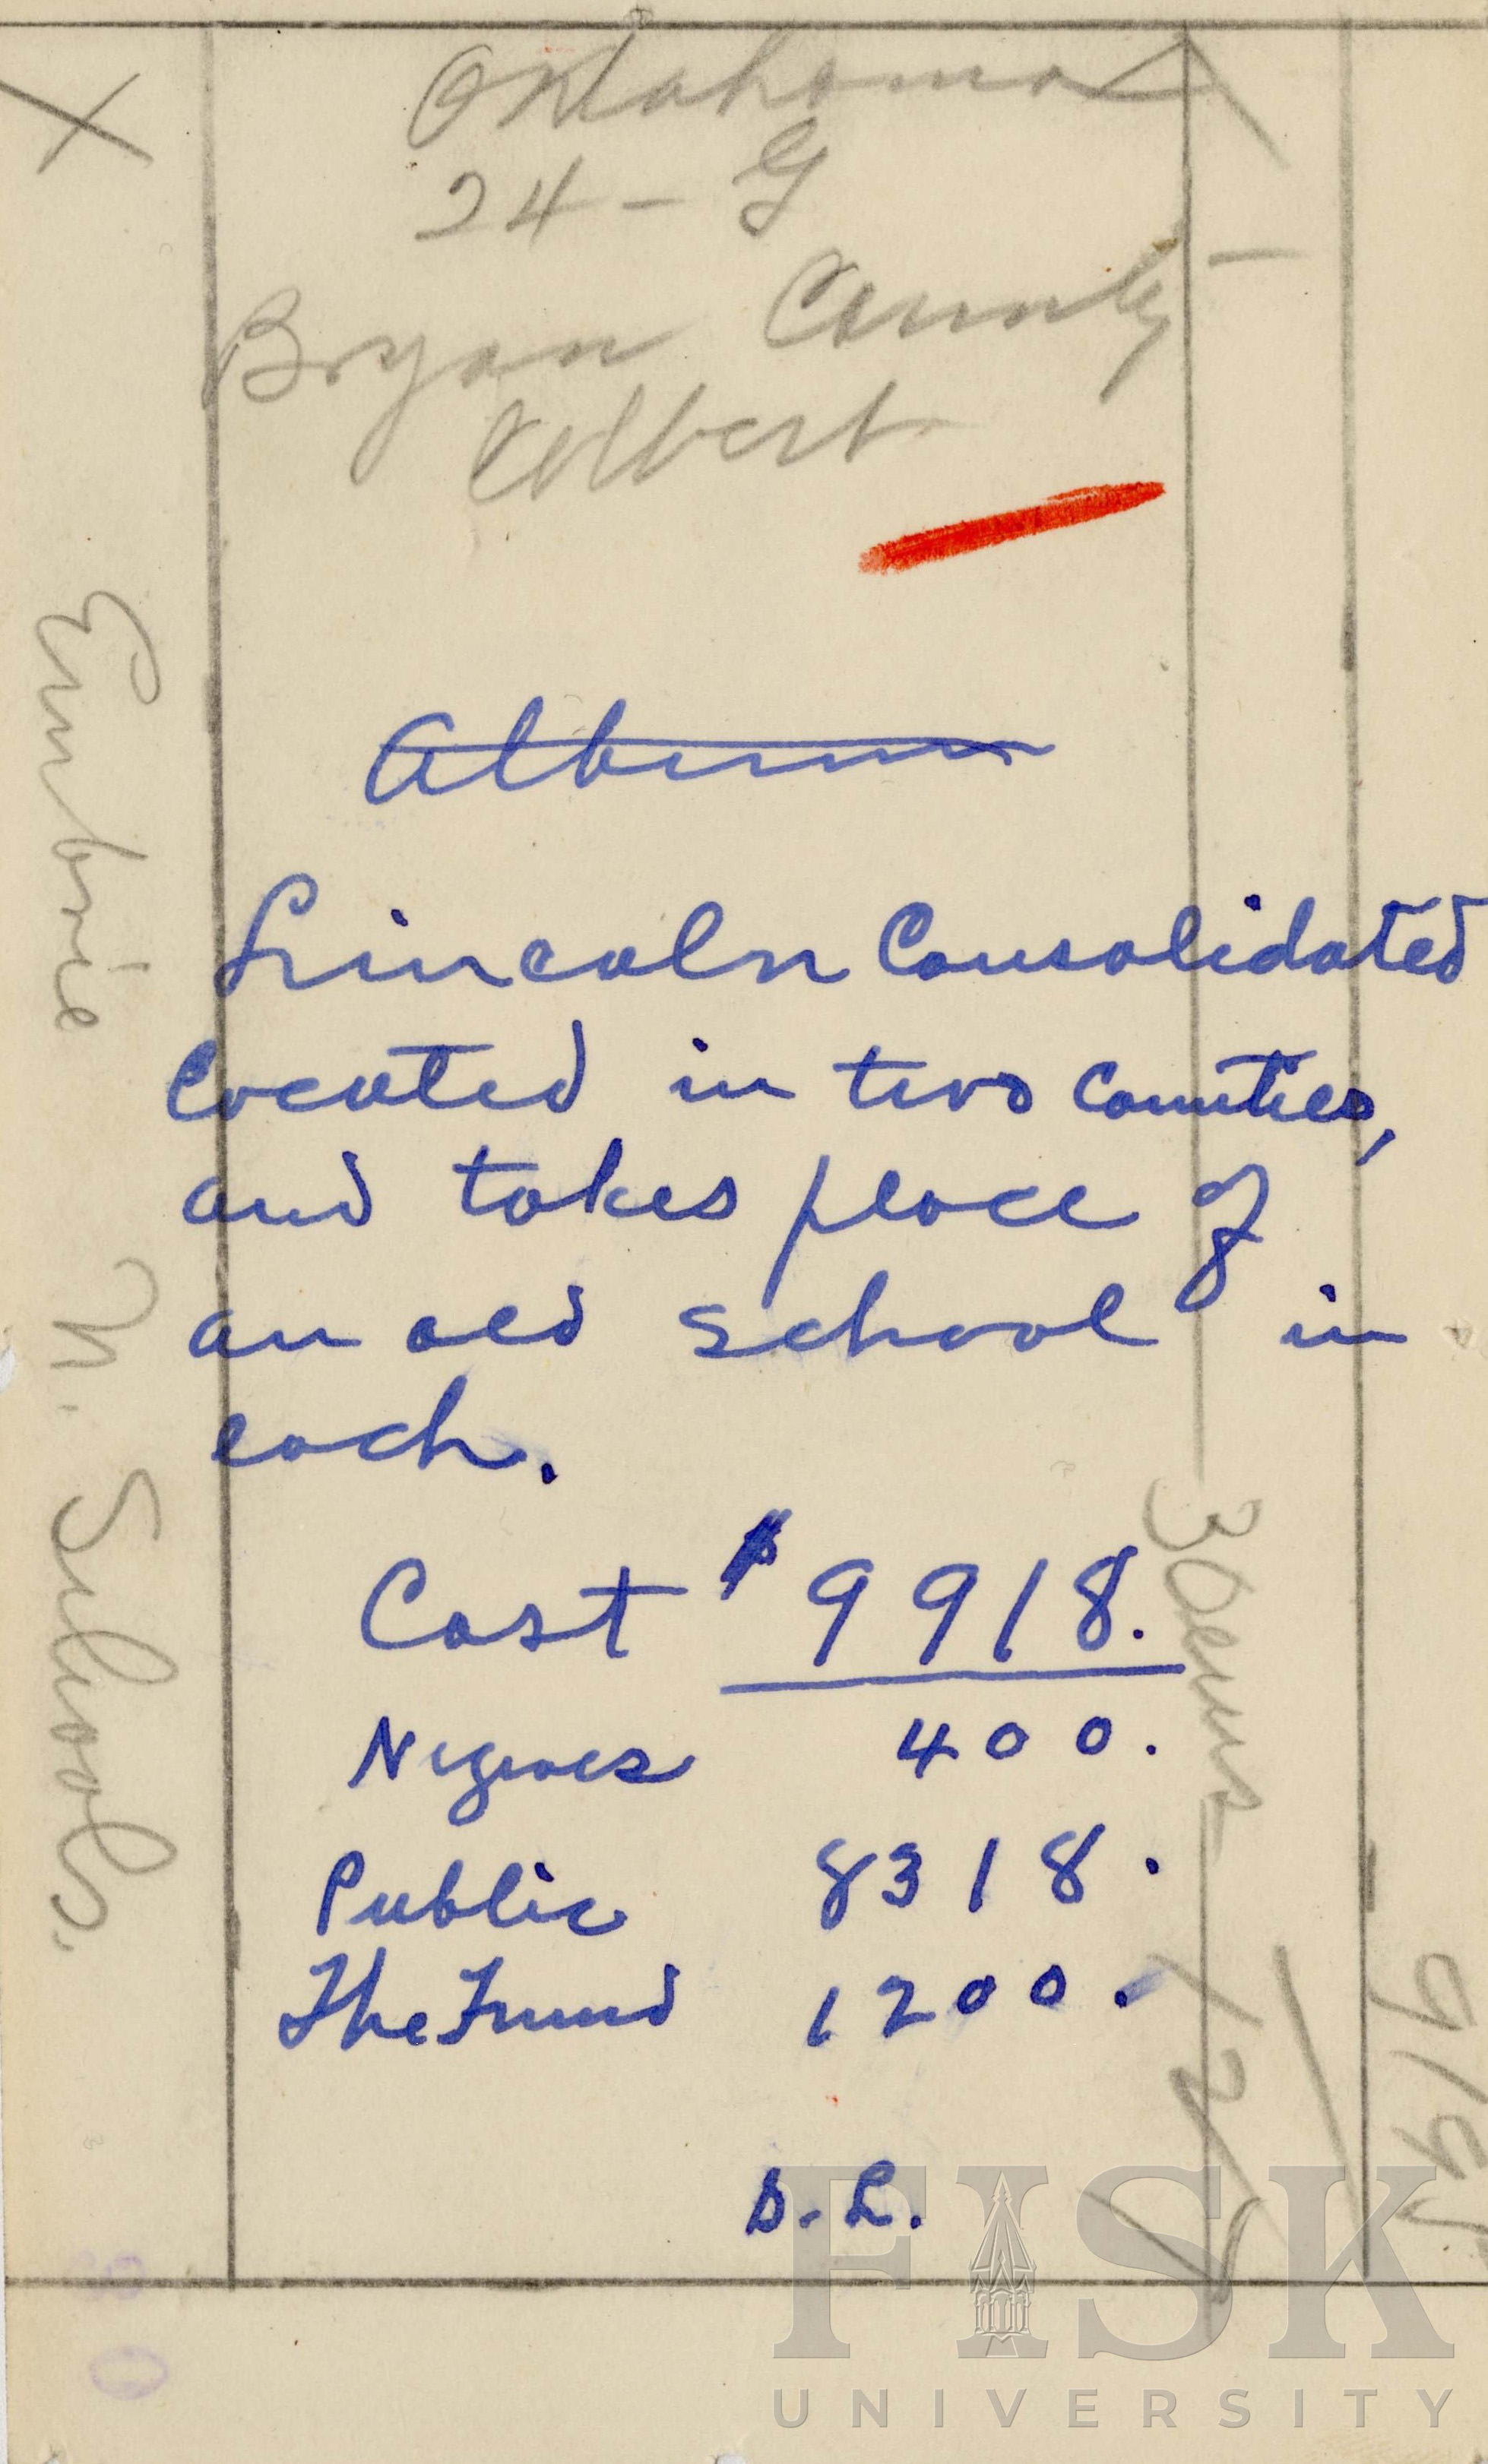 Oklahoma
24 - G
Bryan County
Colbert
Album
Lincoln Consolidated
located in two counties,
and takes place of
an old school in
each.
Cost $ 9918.
Negroes 400.
Public 8318.
The Fund 1200.
S. L.
Embrie N. Schools.
30 ems
FISK
UNIVERSITY